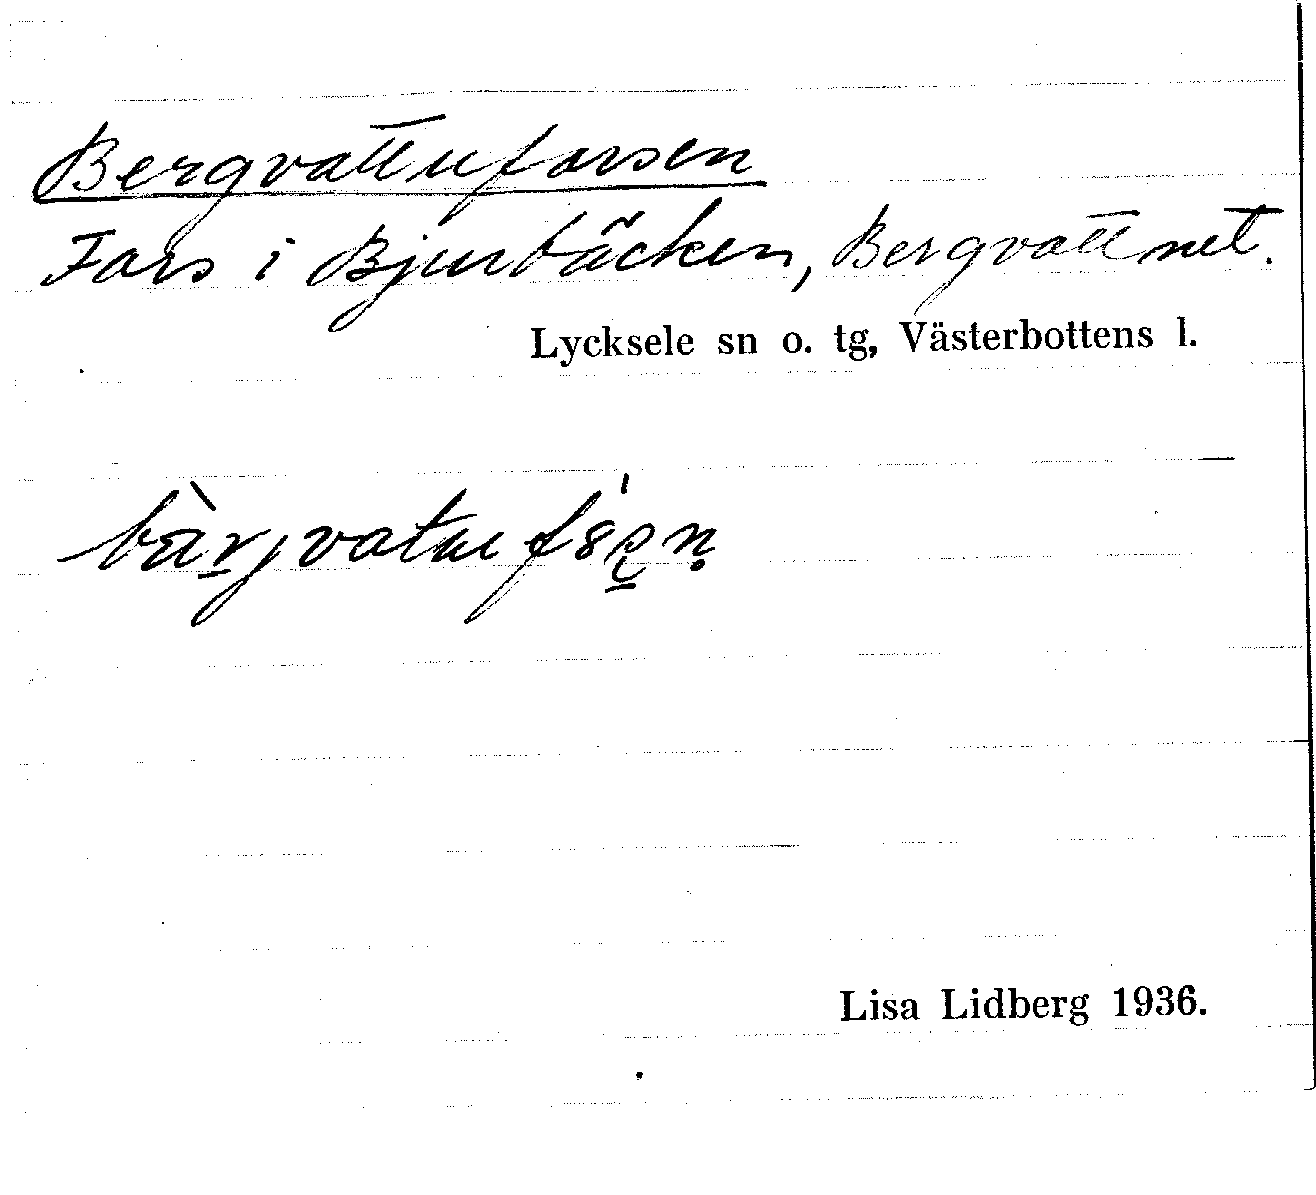 Bergvattuforsen
Fors i Bjurbäcken, Bergvattnet.
Lycksele sn o. tg, Västerbottens l.
Lisa Lidberg 1936.